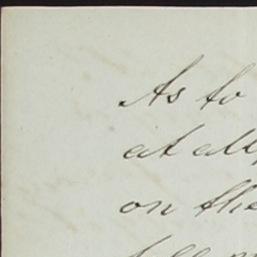 As to
at all
on the